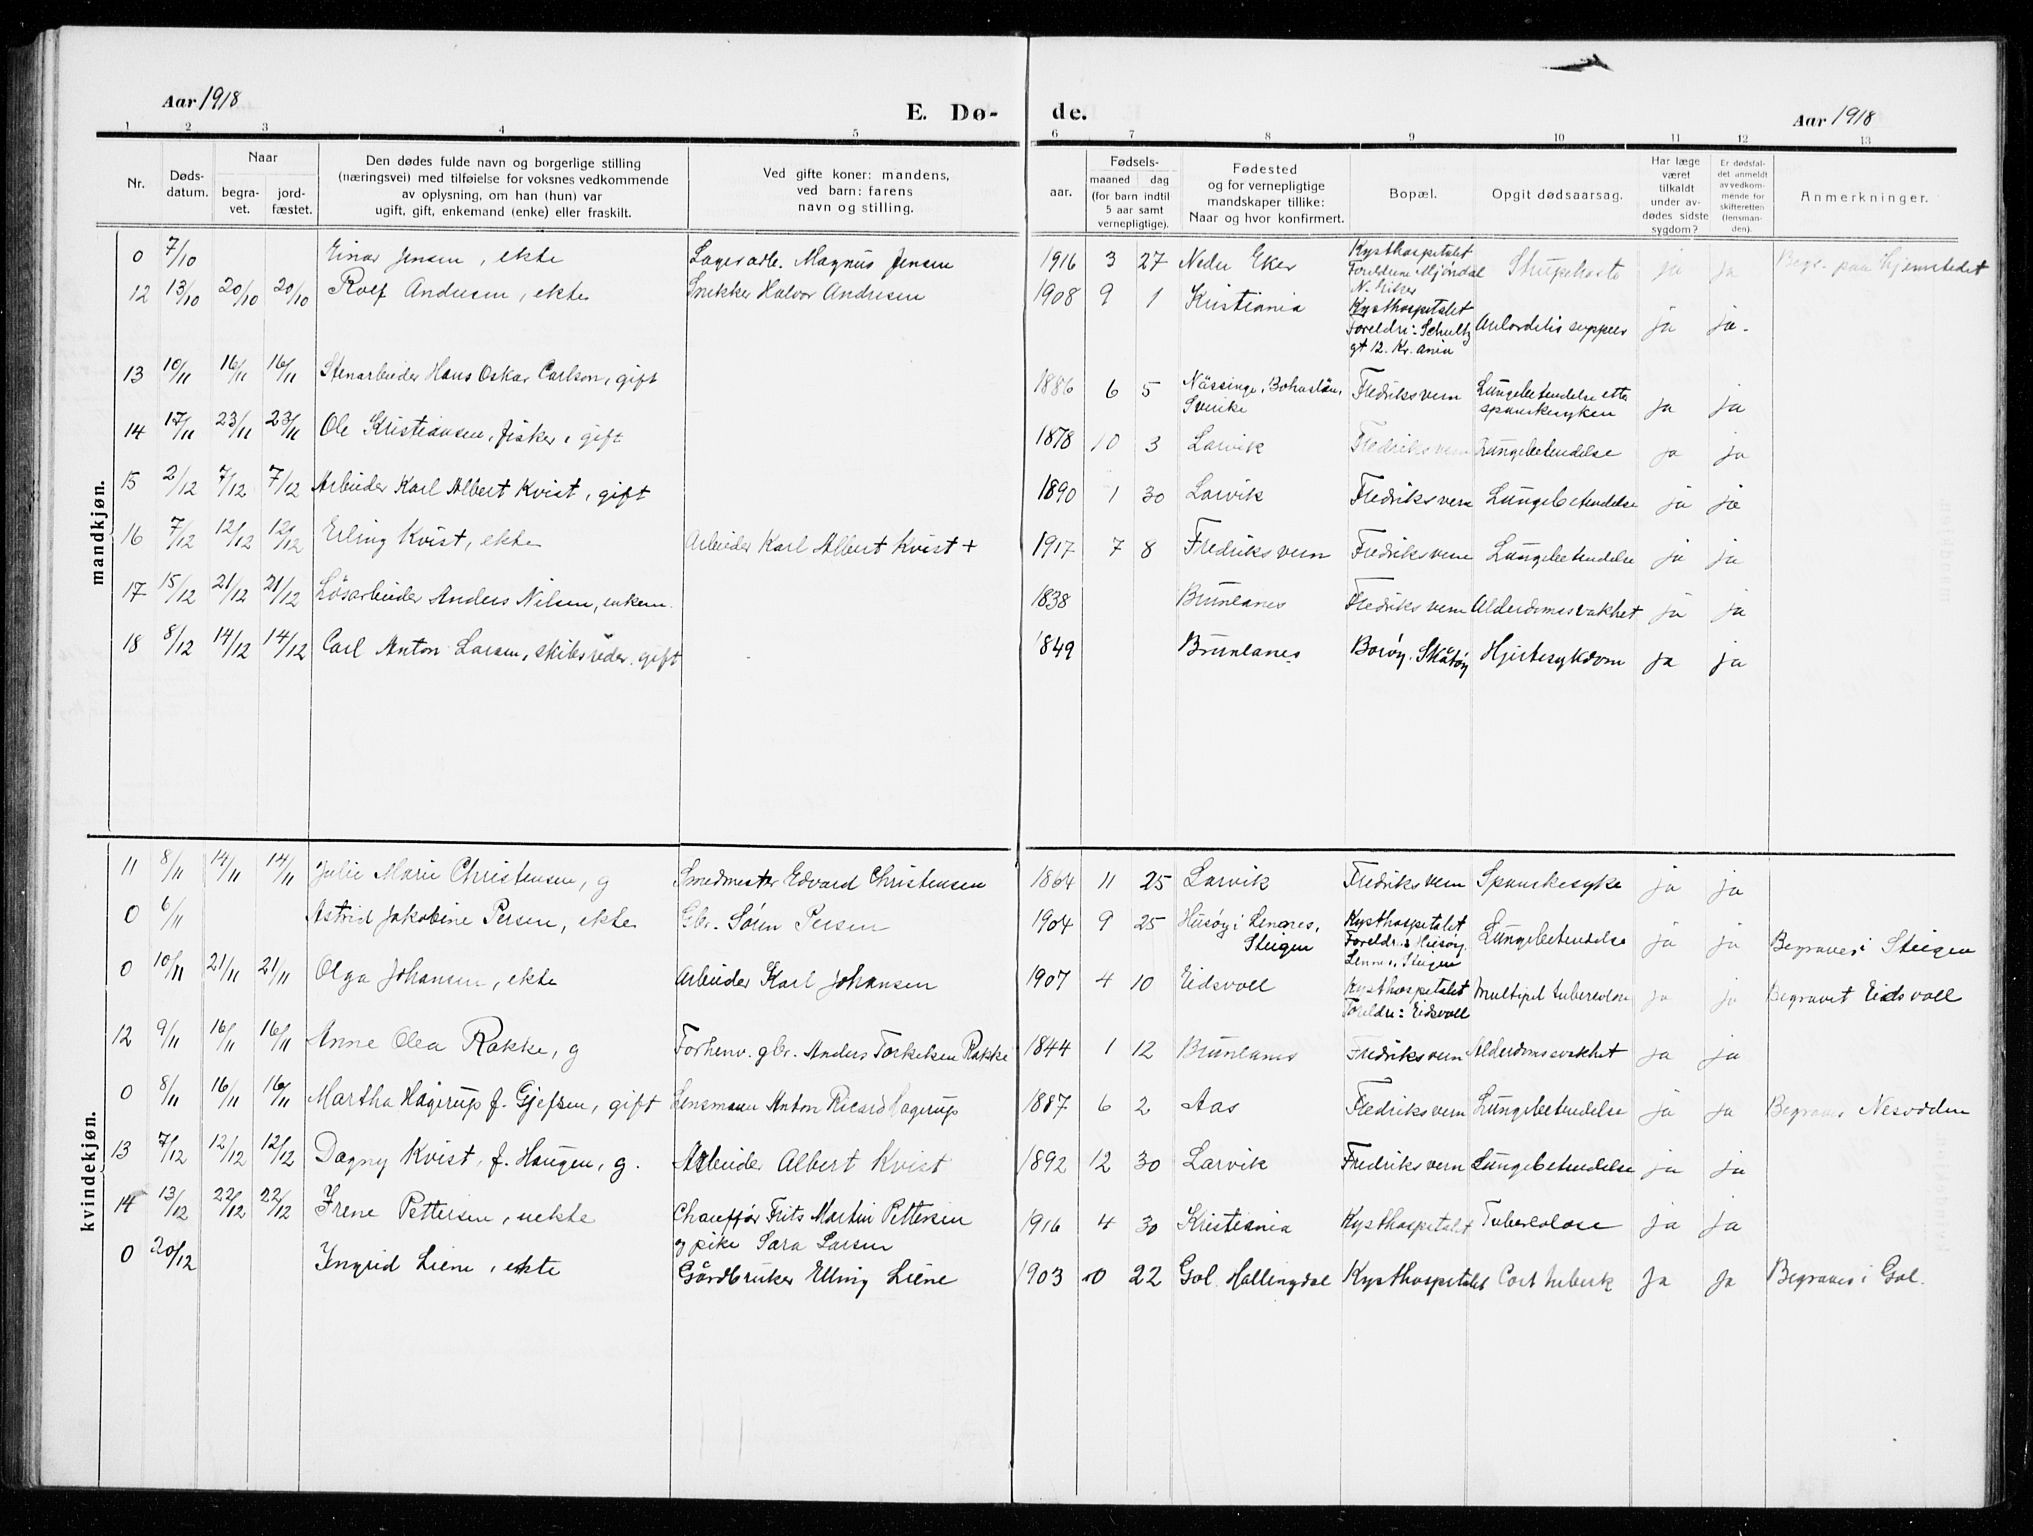 Aar 1918
E. Dø-
de.
Aar 1918
1 2 3 4 5 6 7 8 9 10 11 12 13
Nr.
Døds-
datum.
Naar
begra-
vet.
jord-
fæstet.
Den dødes fulde navn og borgerlige stilling
(næringsvei) med tilføielse for voksnes vedkommende
av oplysning, om han (hun) var
ugift, gift, enkemand (enke) eller fraskilt.
Ved gifte koner: mandens,
ved barn: farens
navn og stilling.
Fødsels-
aar.
maaned dag
(for barn indtil
5 aar samt
vernepligtige).
Fødested
og for vernepligtige
mandskaper tillike:
Naar og hvor konfirmert.
Bopæl.
Opgit dødsaarsag.
Har læge
været
tilkaldt
under av-
dødes sidste
sygdom?
Er dødsfal-
det anmeldt
av vedkom-
mende for
skifteretten
(lensman-
den).
Anmerkninger.
mandkjøn.
0 7/10 Einar Jensen, ekte Lagerarb. Magnus Jensen 1916 3 27 Nedre Eker Kysthospitalet
Foreldrene Mjøndal
N. Eiker
ja ja Begr. paa hjemstedet
12 13/10 20/10 20/10 Rolf Andresen, ekte Snekker Halvor Andresen 1908 9 1 Kristiania Kysthospitalet
Foreldre: Schultz
gt 12. Kr.ania
ja ja.
13 10/11 16/11 16/11 Stenarbeider Hans Oskar Carlson, gift 1886 6 5 Nässinge, Bohuslän,
Sverike
Fredriksvern Lungebetendelse etter
spanskesyken ja ja
14 17/11 23/11 23/11 Ole Kristiansen, fisker, gift 1878 10 3 Larvik Fredriksvern Lungebetendelse ja ja
15 2/12 7/12 7/12 Arbeider Karl Albert Kvist, gift 1890 1 30 Larvik Fredriksvern Lungebetendelse ja ja
16 7/12 12/12 12/12 Erling Kvist, ekte Arbeider Karl Albert Kvist + 1917 7 8 Fredriksvern Fredriksvern Lungebetendelse ja ja
17 15/12 21/12 21/12 Løsarbeider Anders Nilsen, enkem. 1838 Brunlanes Fredriksvern Alderdomssvakhet ja ja
18 8/12 14/12 14/12 Carl Anton Larsen, skibsreder, gift 1849 Brunlanes Borøy, Skåtøy Hjertesykdom ja ja
kvindekjøn.
11 8/11 14/11 14/11 Julie Marie Christensen, g Smedmester Edvard Christensen 1864 11 25 Larvik Fredriksvern Spanskesyke ja ja
0 6/11 Astrid Jakobine Persen, ekte Gbr. Søren Persen 1904 9 25 Husøy i Lennes,
Steigen
Kysthospitalet
Foreldre: Husøy,
Lennes, Steigen
Lungebetendelse ja ja Begraves i Steigen
0 10/11 21/11 21/11 Olga Johansen, ekte Arbeider Karl Johansen 1907 4 10 Eidsvoll Kysthospitalet
Foreldre: Eidsvoll
Multipel tuberculose ja ja Begravet Eidsvoll
12 9/11 16/11 16/11 Anne Olea Rakke, g Forhenv. gbr. Anders Torkelsen Rakke 1844 1 12 Brunlanes Fredriksvern Alderdomssvakhet ja ja
0 8/11 16/11 16/11 Martha Hagerup f. Gjefsen, gift Lensmann Anton Ricard Hagerup 1887 6 2 Aas Fredriksvern Lungebetendelse ja ja Begraves Nesodden
13 7/12 12/12 12/12 Dagny Kvist, f. Haugen, g. Arbeider Albert Kvist 1892 12 30 Larvik Fredriksvern Lungebetendelse ja ja
14 13/12 22/12 22/12 Irene Pettersen, uekte Chauffør Frits Martin Pettersen
og pike Sara Larsen
1916 4 30 Kristiania Kysthospitalet Tuberculose ja ja
0 20/12 Ingrid Liene, ekte Gårdbruker Elling Liene 1903 10 22 Gol. Hallingdal Kysthospitalet ja ja Begraves i Gol.